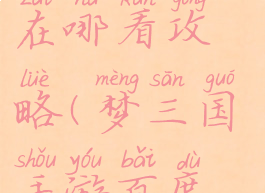 zài nǎ kàn gōng
在哪看攻
lüè mèng sān guó
略(梦三国
shǒu yóu bǎi dù
手游百度